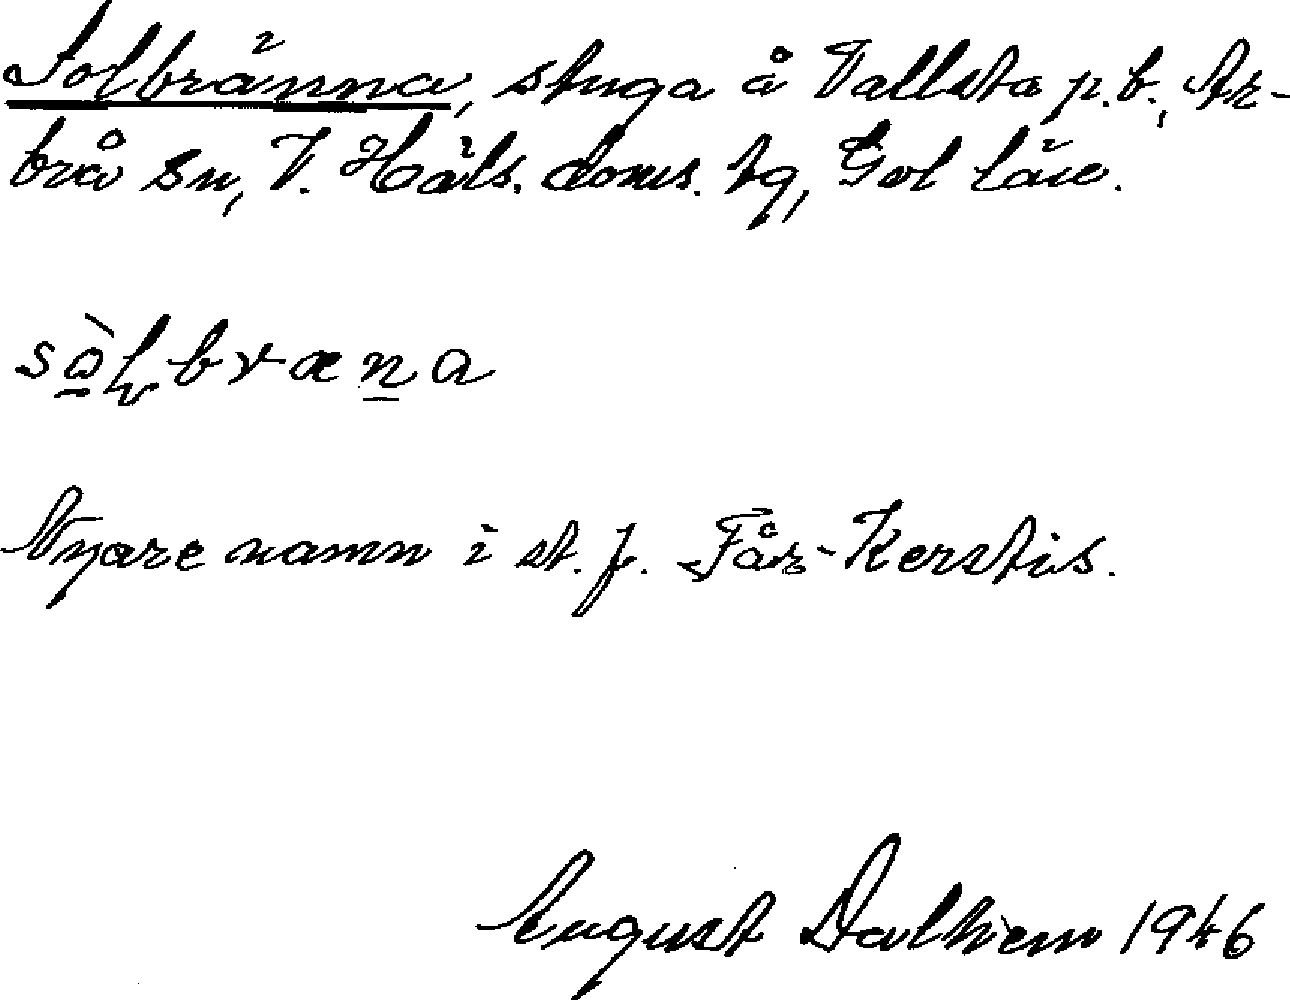 Solbränna, stuga å Vallsta p.b., Ar-
brå sn, V. Häls. doms. tg, Gvl län.
sòlbræna
Nyare namn i st. f. Får-Kerstis.
August Dalhem 1946